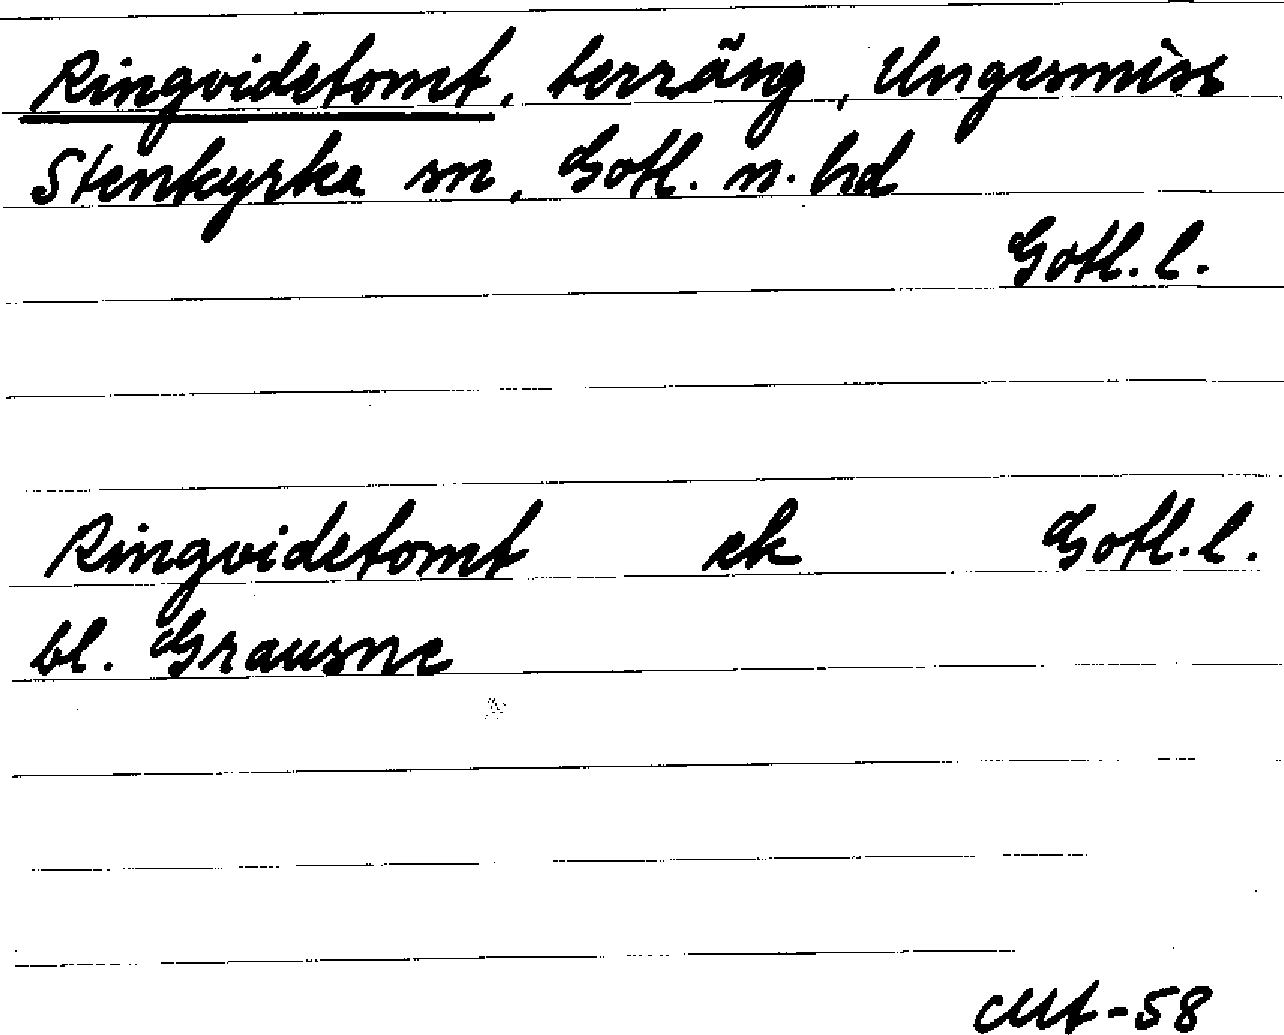 Ringvidetomt, terräng, Ungesmise
Stenkyrka sn, Gotl. n. hd
Gotl. l.
Ringvidetomt ek Gotl. l.
bl. Grausne